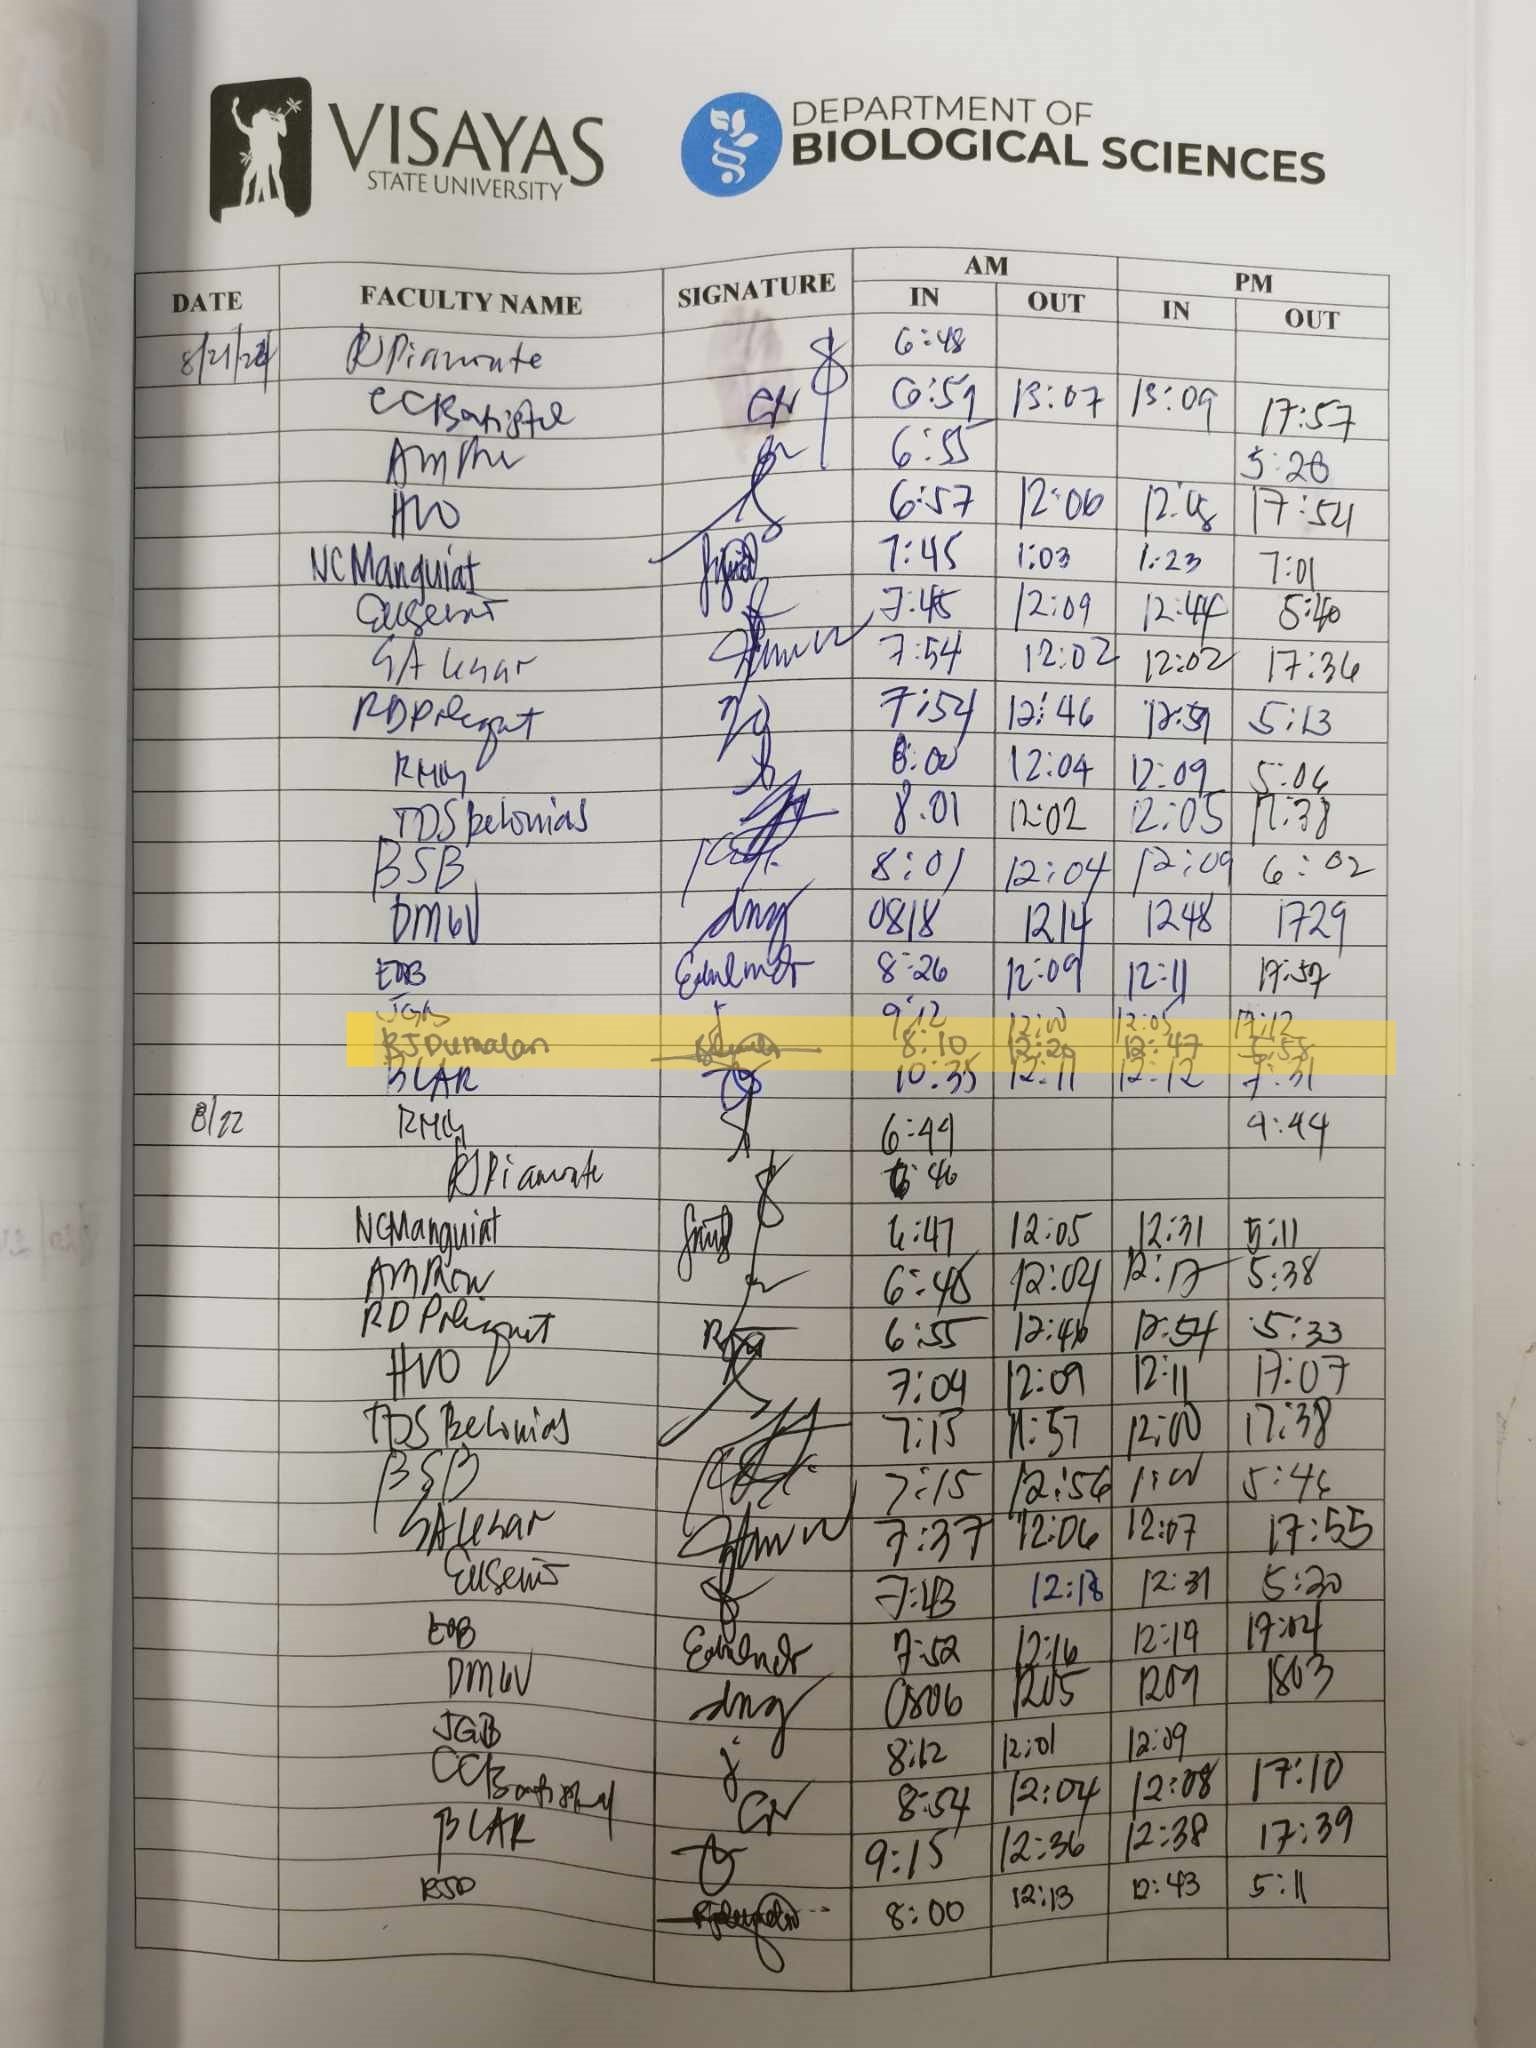 VISAYAS
STATE UNIVERSITY
DEPARTMENT OF
BIOLOGICAL SCIENCES
DATE FACULTY NAME SIGNATURE AM PM
IN OUT IN OUT
8/21/24 RJ Piamonte 6:48
CCBatistel 6:59 13:07 13:09 17:57
6:55 5:20
HVO 6:57 12:06 12:08 17:54
NCManguiat 7:45 1:03 1:23 7:01
Eusebio 7:45 12:09 12:44 5:40
7:54 12:02 12:02 17:36
7:54 12:46 12:59 5:13
RMG 8:00 12:04 12:09 5:06
TDSBelonias 8:01 12:02 12:05 17:38
BSB 8:01 12:04 12:09 6:02
DMGV 0818 1214 1248 1729
EOB 8:26 12:09 12:11 17:57
JGB 9:12 12:00 12:05 17:12
RJDumalan 8:10 12:20 12:47 5:58
BLAR 10:35 12:11 12:12 7:31
8/22 RMG 6:49 4:44
RJ Piamonte 6:46
NCManguiat 6:47 12:05 12:31 5:11
6:48 12:04 12:12 5:38
6:55 12:46 12:54 5:33
HVO 7:04 12:09 12:11 17:07
TDS Belonias 7:15 11:57 12:00 17:38
BSB 7:15 12:56 1:00 5:46
7:37 12:06 12:07 17:55
Eusebio 7:43 12:18 12:31 5:20
EOB 7:52 12:16 12:19 17:04
DMGV 0806 1205 1209 1803
JGB 8:12 12:01 12:09
CCBatistel 8:54 12:04 12:08 17:10
BLAR 9:15 12:36 12:38 17:39
RJD 8:00 12:13 12:43 5:11